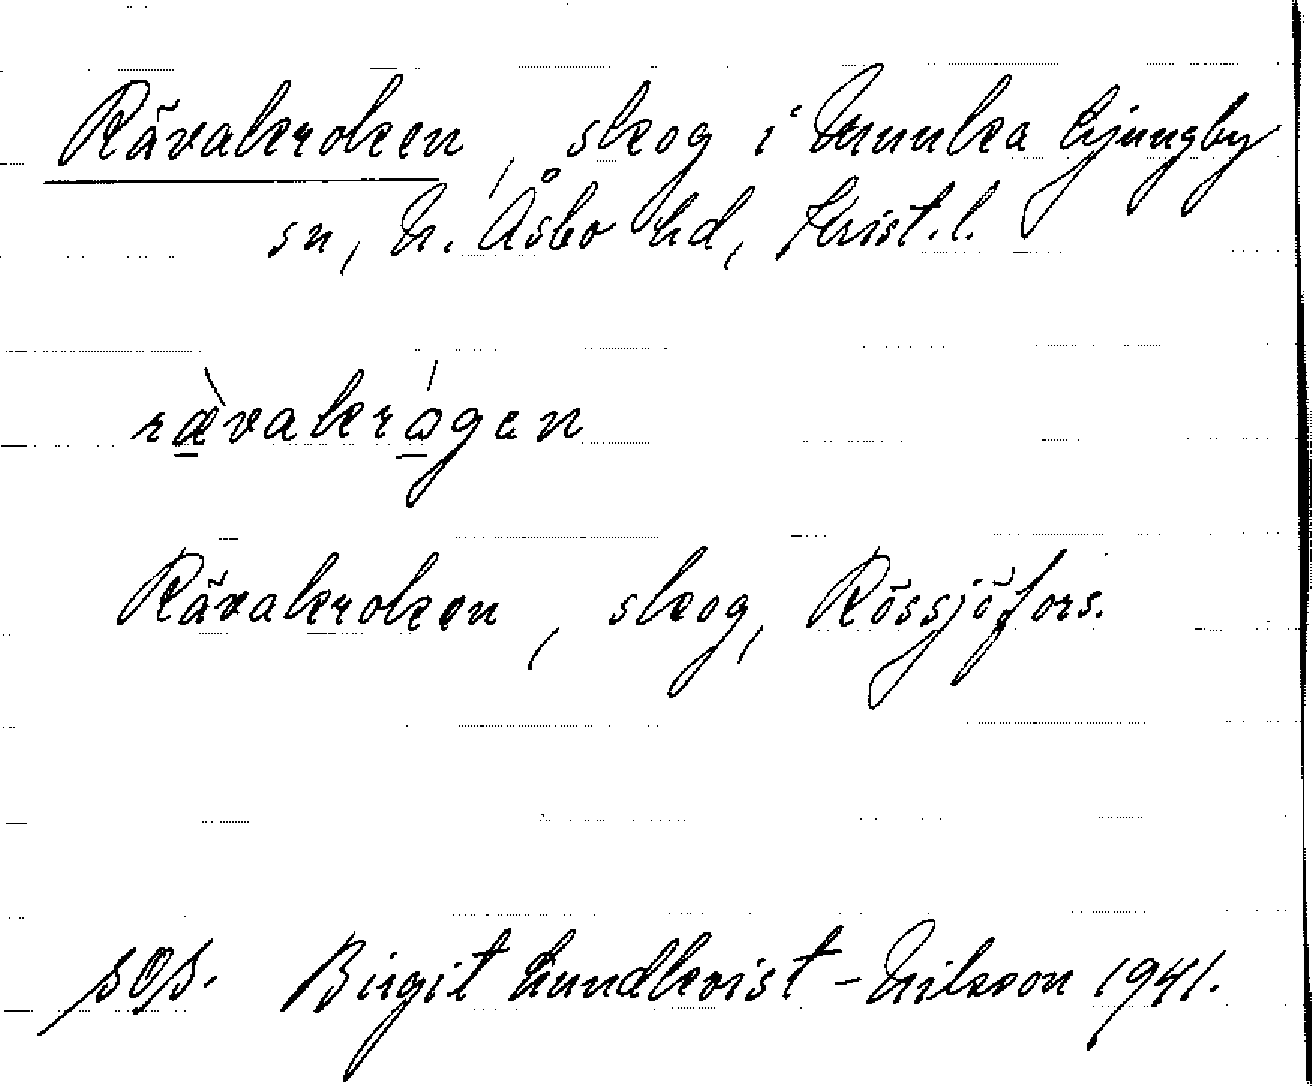 Rävakroken, skog i Munka Ljungby
sn, N. Åsbo hd, Krist. l.
rävakrågen
Rävakroken, skog, Rössjöfors.
Birgit Lundkvist-Nilsson 1941.